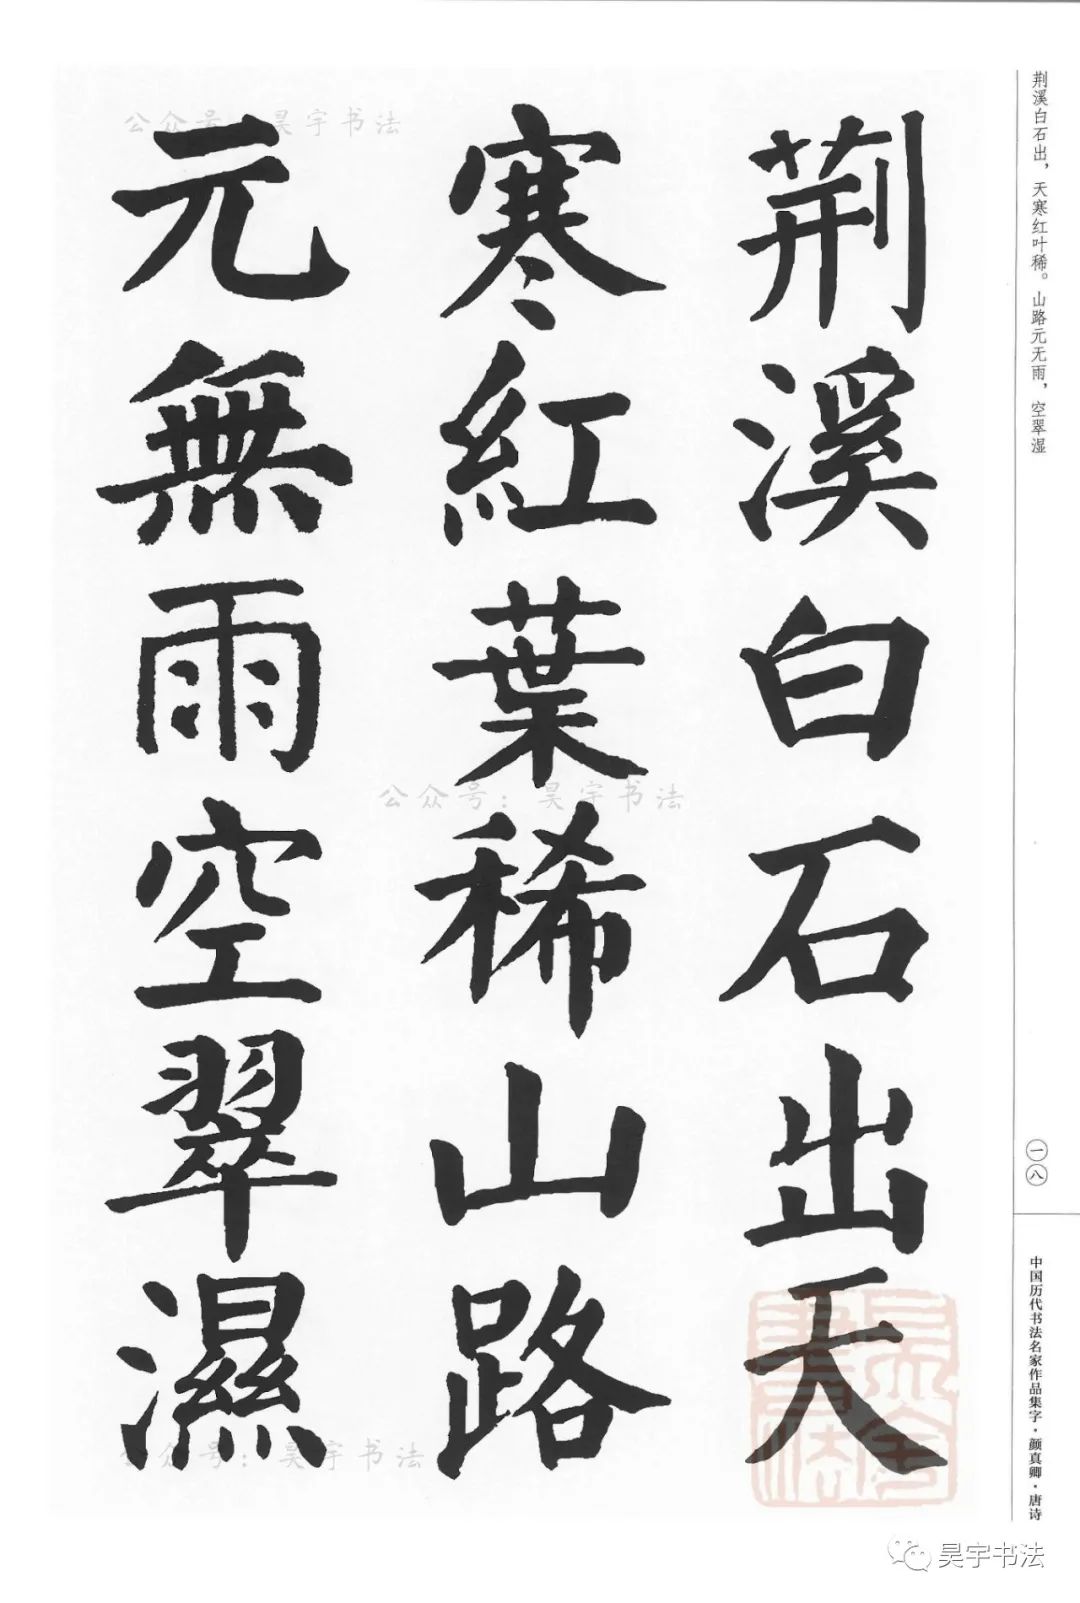 荆溪白石出，天寒红叶稀。山路元无雨，空翠湿
荆溪白石出天
寒紅葉稀山路
元無雨空翠濕
一八
中国历代书法名家作品集字·颜真卿·唐诗
公众号：昊宇书法
公众号：昊宇书法
公众号：昊宇书法
昊宇书法
昊宇书法